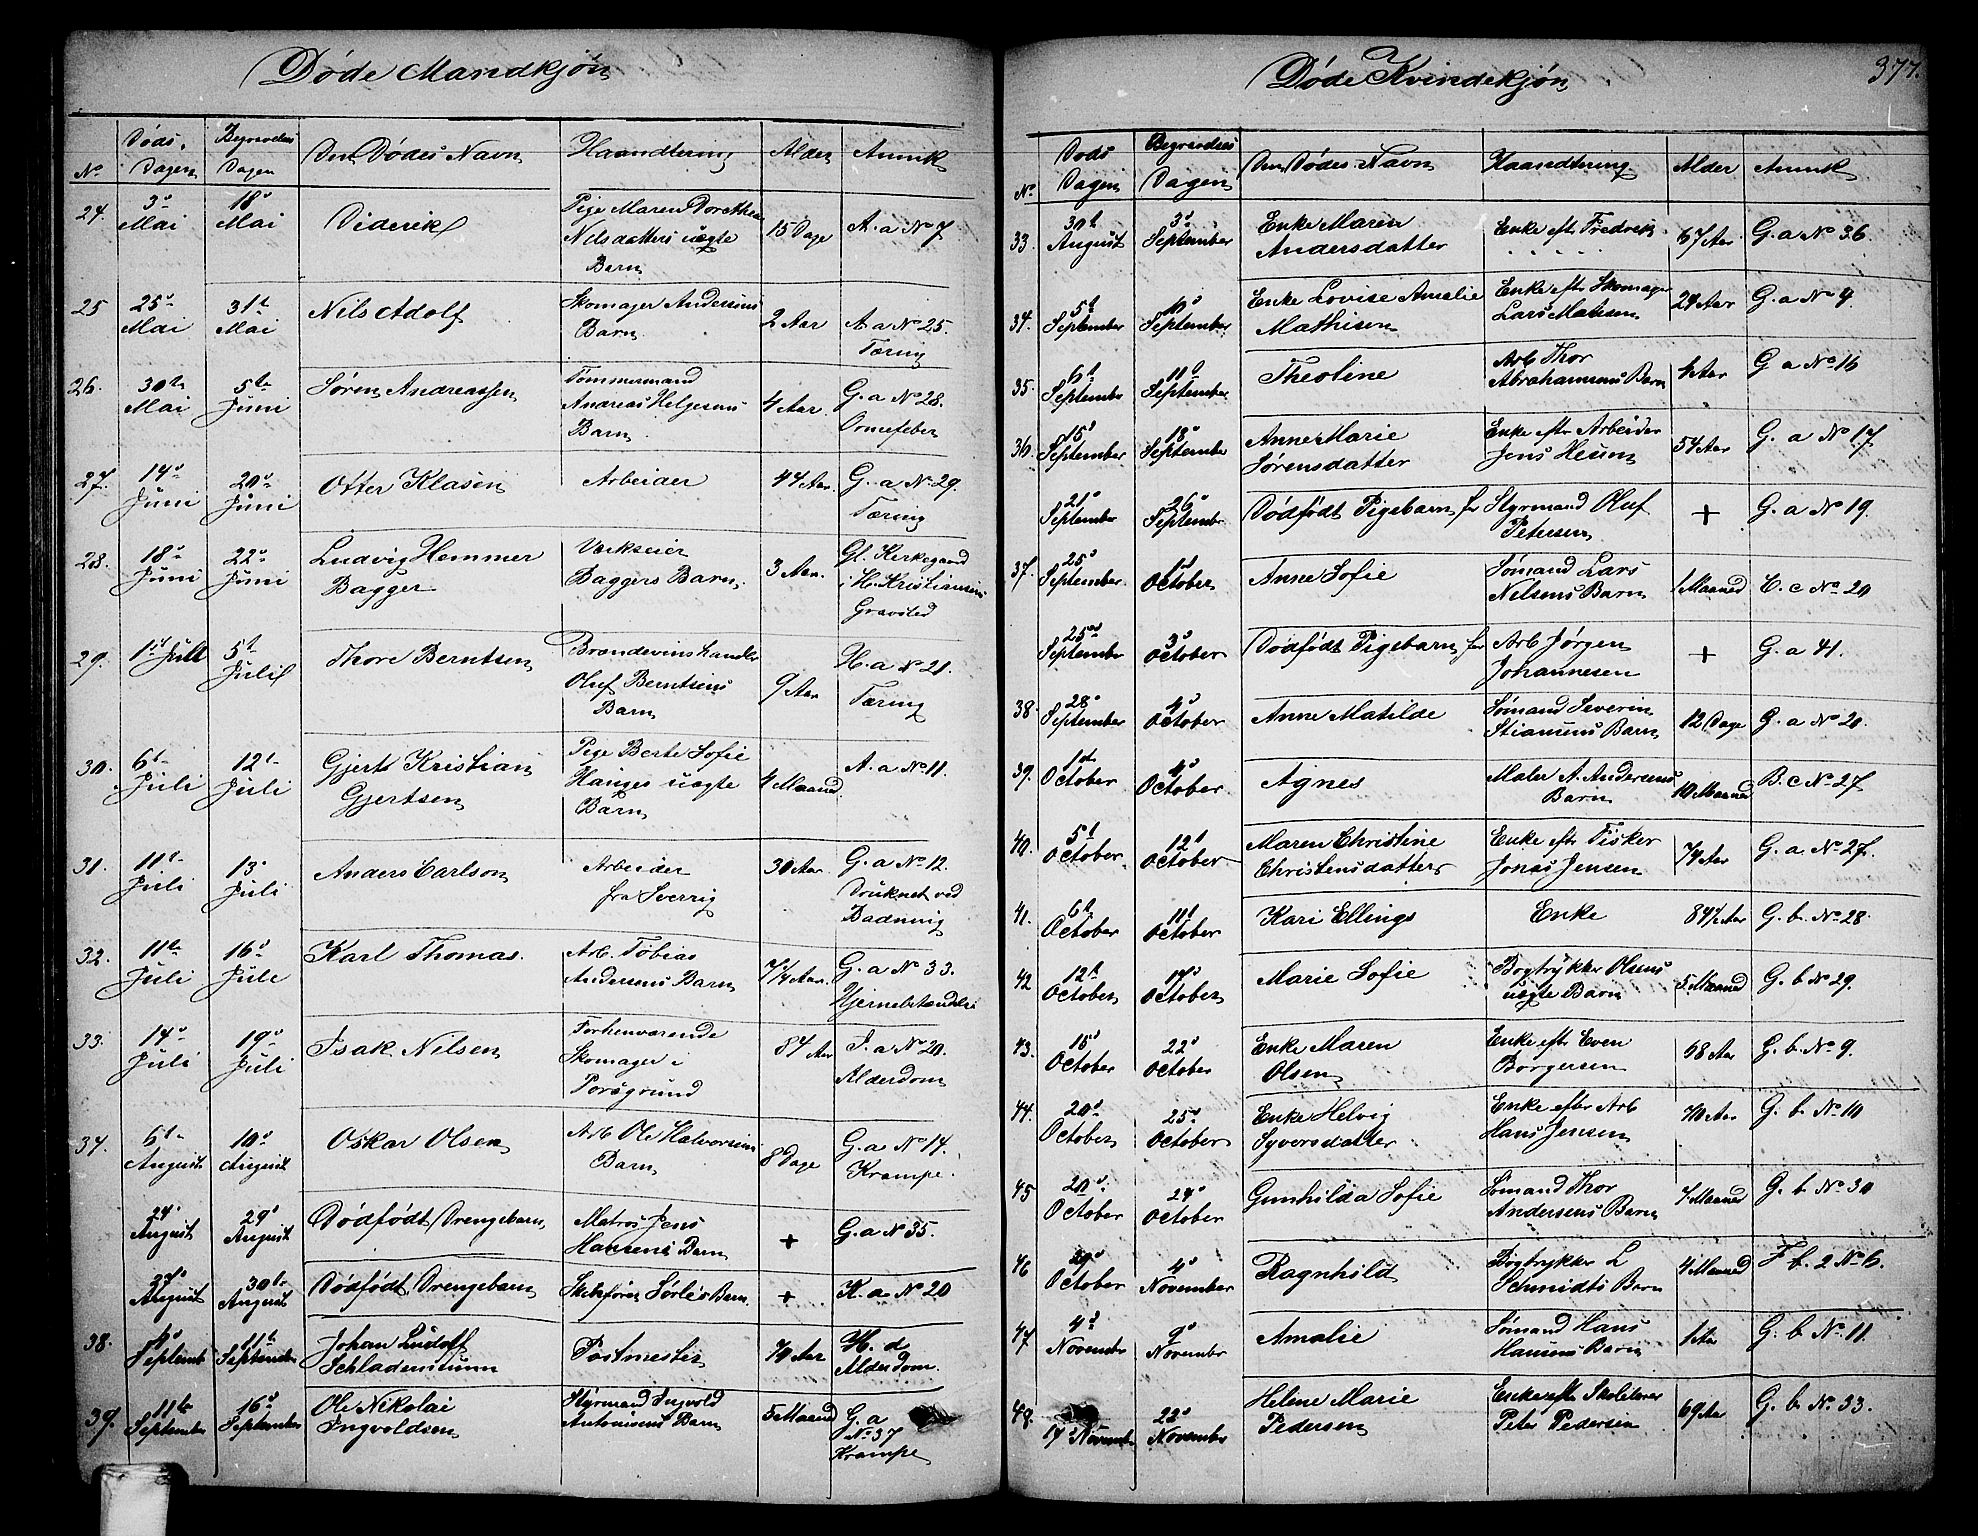 Døde Mandkjøn
No | Døds Dagen | Begravelses Dagen | Den Dødes Navn | Haandtering | Alder | Anmk
24. | 3d Mai | 18d Mai | Diderik | Pige Maren Dorothea Nilsdatters uægte Barn | 15 Dage | A. a No 7
25 | 25d Mai | 31t Mai | Nils Adolf | Skomager Andersens Barn | 2 Aar | A a No 25. Tæring
26. | 30te Mai | 5te Juni | Søren Andreassen | Tømmermand Andreas Helgesens Barn | 4 Aar. | G. a No 28. Ormefeber
27. | 14d Juni | 20d Juni | Otter Klasen | Arbeider | 44 Aar. | G. a No 29. Tæring
28. | 18d Juni | 22d Juni | Ludvig Hemmer Bagger | Værkseier Baggers Barn. | 3 Aar. | Gl. Kirkegaard i H. Kristiansens Gravsted
29. | 1st Juli | 5t Juli | Thore Berntsen | Brændevinshandler Oluf Berntsens Barn | 9 Aar | H. a No 21. Tæring
30. | 6te Juli | 12te Juli | Gjert Kristian Gjertsen | Pige Berte Sofie Hauges uægte Barn | 4 Maaned | A. a No 11.
31. | 11te Juli | 13d Juli | Anders Carlson | Arbeider fra Sverrig | 30 Aar. | G. a No 12. Druknet ved Badning
32. | 11te Juli | 16d Juli | Karl Thomas. | Arb. Tobias Andersens Barn | 7 1/4 Aar. | G. a No 33. Hjernebetændelse
33. | 14d Juli | 19d Juli | Isak Nilsen | Forhenværende Skomager i Porsgrund | 84 Aar | I. a No 20. Alderdom
34. | 6te August | 10d August | Oskar Olsen | Arb Ole Halvorsens Barn | 8 Dage | G. a No 14. Krampe.
24d August | 29d August | Dødfødt Drengebarn | Matros Jens Hansens Barn | + | G. a No 35.
27d August | 30te August | Dødfødt Drengebarn | Skibsfører Sørles Barn. | + | K. a No 20
38. | 4d Septemb | 11te September | Johan Ludolf | Postmester | 74 Aar | H. d Alderdom.
39. | 11te September | 16d September | Ole Nikolai Ingvoldsen | Styrmand Ingvold Antonsens Barn | 5 Maaned | G. a No 37 Krampe
Døde Kvindekjøn
377.
No | Døds Dagen | Begravelses Dagen | Den Dødes Navn | Haandtering | Alder | Anmk
33. | 30t August | 3d September | Enke Maren Andersdatter | Enke eft Fredrek . . . . | 67 Aar | G. a No 36.
34. | 5t September | 10d September | Enke Lovise Amalie Mathisen | Enke eftr Skomager Lars Matisen | 24 Aar | G. a No 4.
35. | 6t September | 11d September | Theoline | Arb Thor Abrahamsens Barn | 4 Aar | G a No 16
36. | 15d September | 18d September | Anne Marie Sørensdatter | Enke eftr Arbeider Jens | 54 Aar | G. a No 17
21d September | 26d September | Dødfødt Pigebarn fr | Styrmand Oluf Petersen | + | G. a No 19.
37. | 25d September | 1st October | Anne Sofie | Sømand Lars Nilsens Barn | 1 Maaned | C. c No 20
25d September | 3d October | Dødfødt Pigebarn fr | Arb Jørgen Johannesen | + | G. a 41.
38. | 28d September | 4d October | Anne Matilde | Sømand Severin Stiansens Barn | 12 Dage | G. a No 20.
39. | 1st October | 4d October | Agnes | Maler A. Andersens Barn | 10 Maaned | B. c No 27
40. | 5t October | 12t October | Maren Christine Christensdatter | Enke eftr Fisker Jonas Jensen | 74 Aar | G. a. No 27.
41. | 6t October | 11t October | Kari Ellings | Enke | 84 1/2 Aar | G. b. No 28.
42 | 12t October | 17d October | Marie Sofie | Bogtrykker Olsens uægte Barn | 5 Maaned | G. b No 29.
43. | 15d October | 22d October | Enke Maren Olsen | Enke eftr Even Borgersen | 68 Aar | G. b. No 9.
44. | 20d October | 25d October | Enke Helvig Syversdatter | Enke efter Arb Hans Jensen | 70 Aar | G. b. No 10
45 | 20d October | 24d October | Gunhilda Sofie | Sømand Thor Andersens Barn | 7 Maaned | G. b. No 30
46 | 29d October | 4d November | Ragnhild | Bogtrykker L Schmidts Barn | 4 Maaned | F b. 2 No 6.
47 | 4d November | 9d November | Amalie | Sømand Hans Hansens Barn | 1 Aar | G. b. No 11.
48. | 17 November | 23d November | Helene Marie Pedersen | Enke eftr Skolelærer Peter Pedersen | 69 Aar | G. b. No 33.